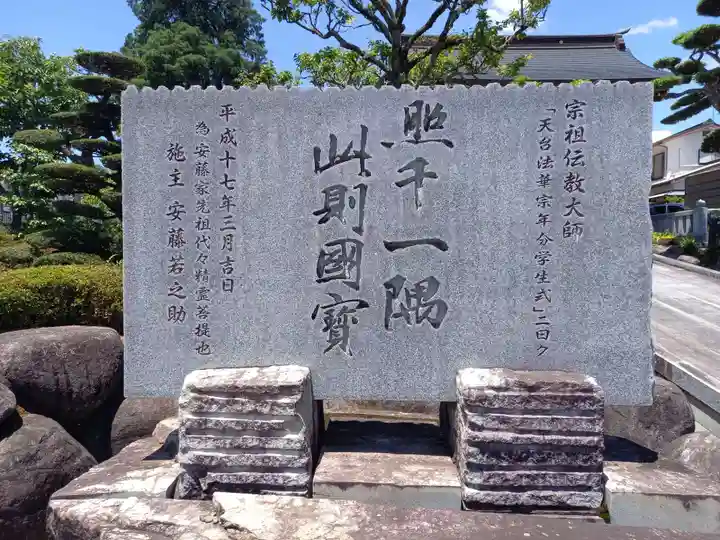 宗祖伝教大師
「天台法華宗年分学生式」ニ曰ク
照千一隅
此則國寳
平成十七年三月吉日
為安藤家先祖代々精霊菩提也
施主安藤若之助